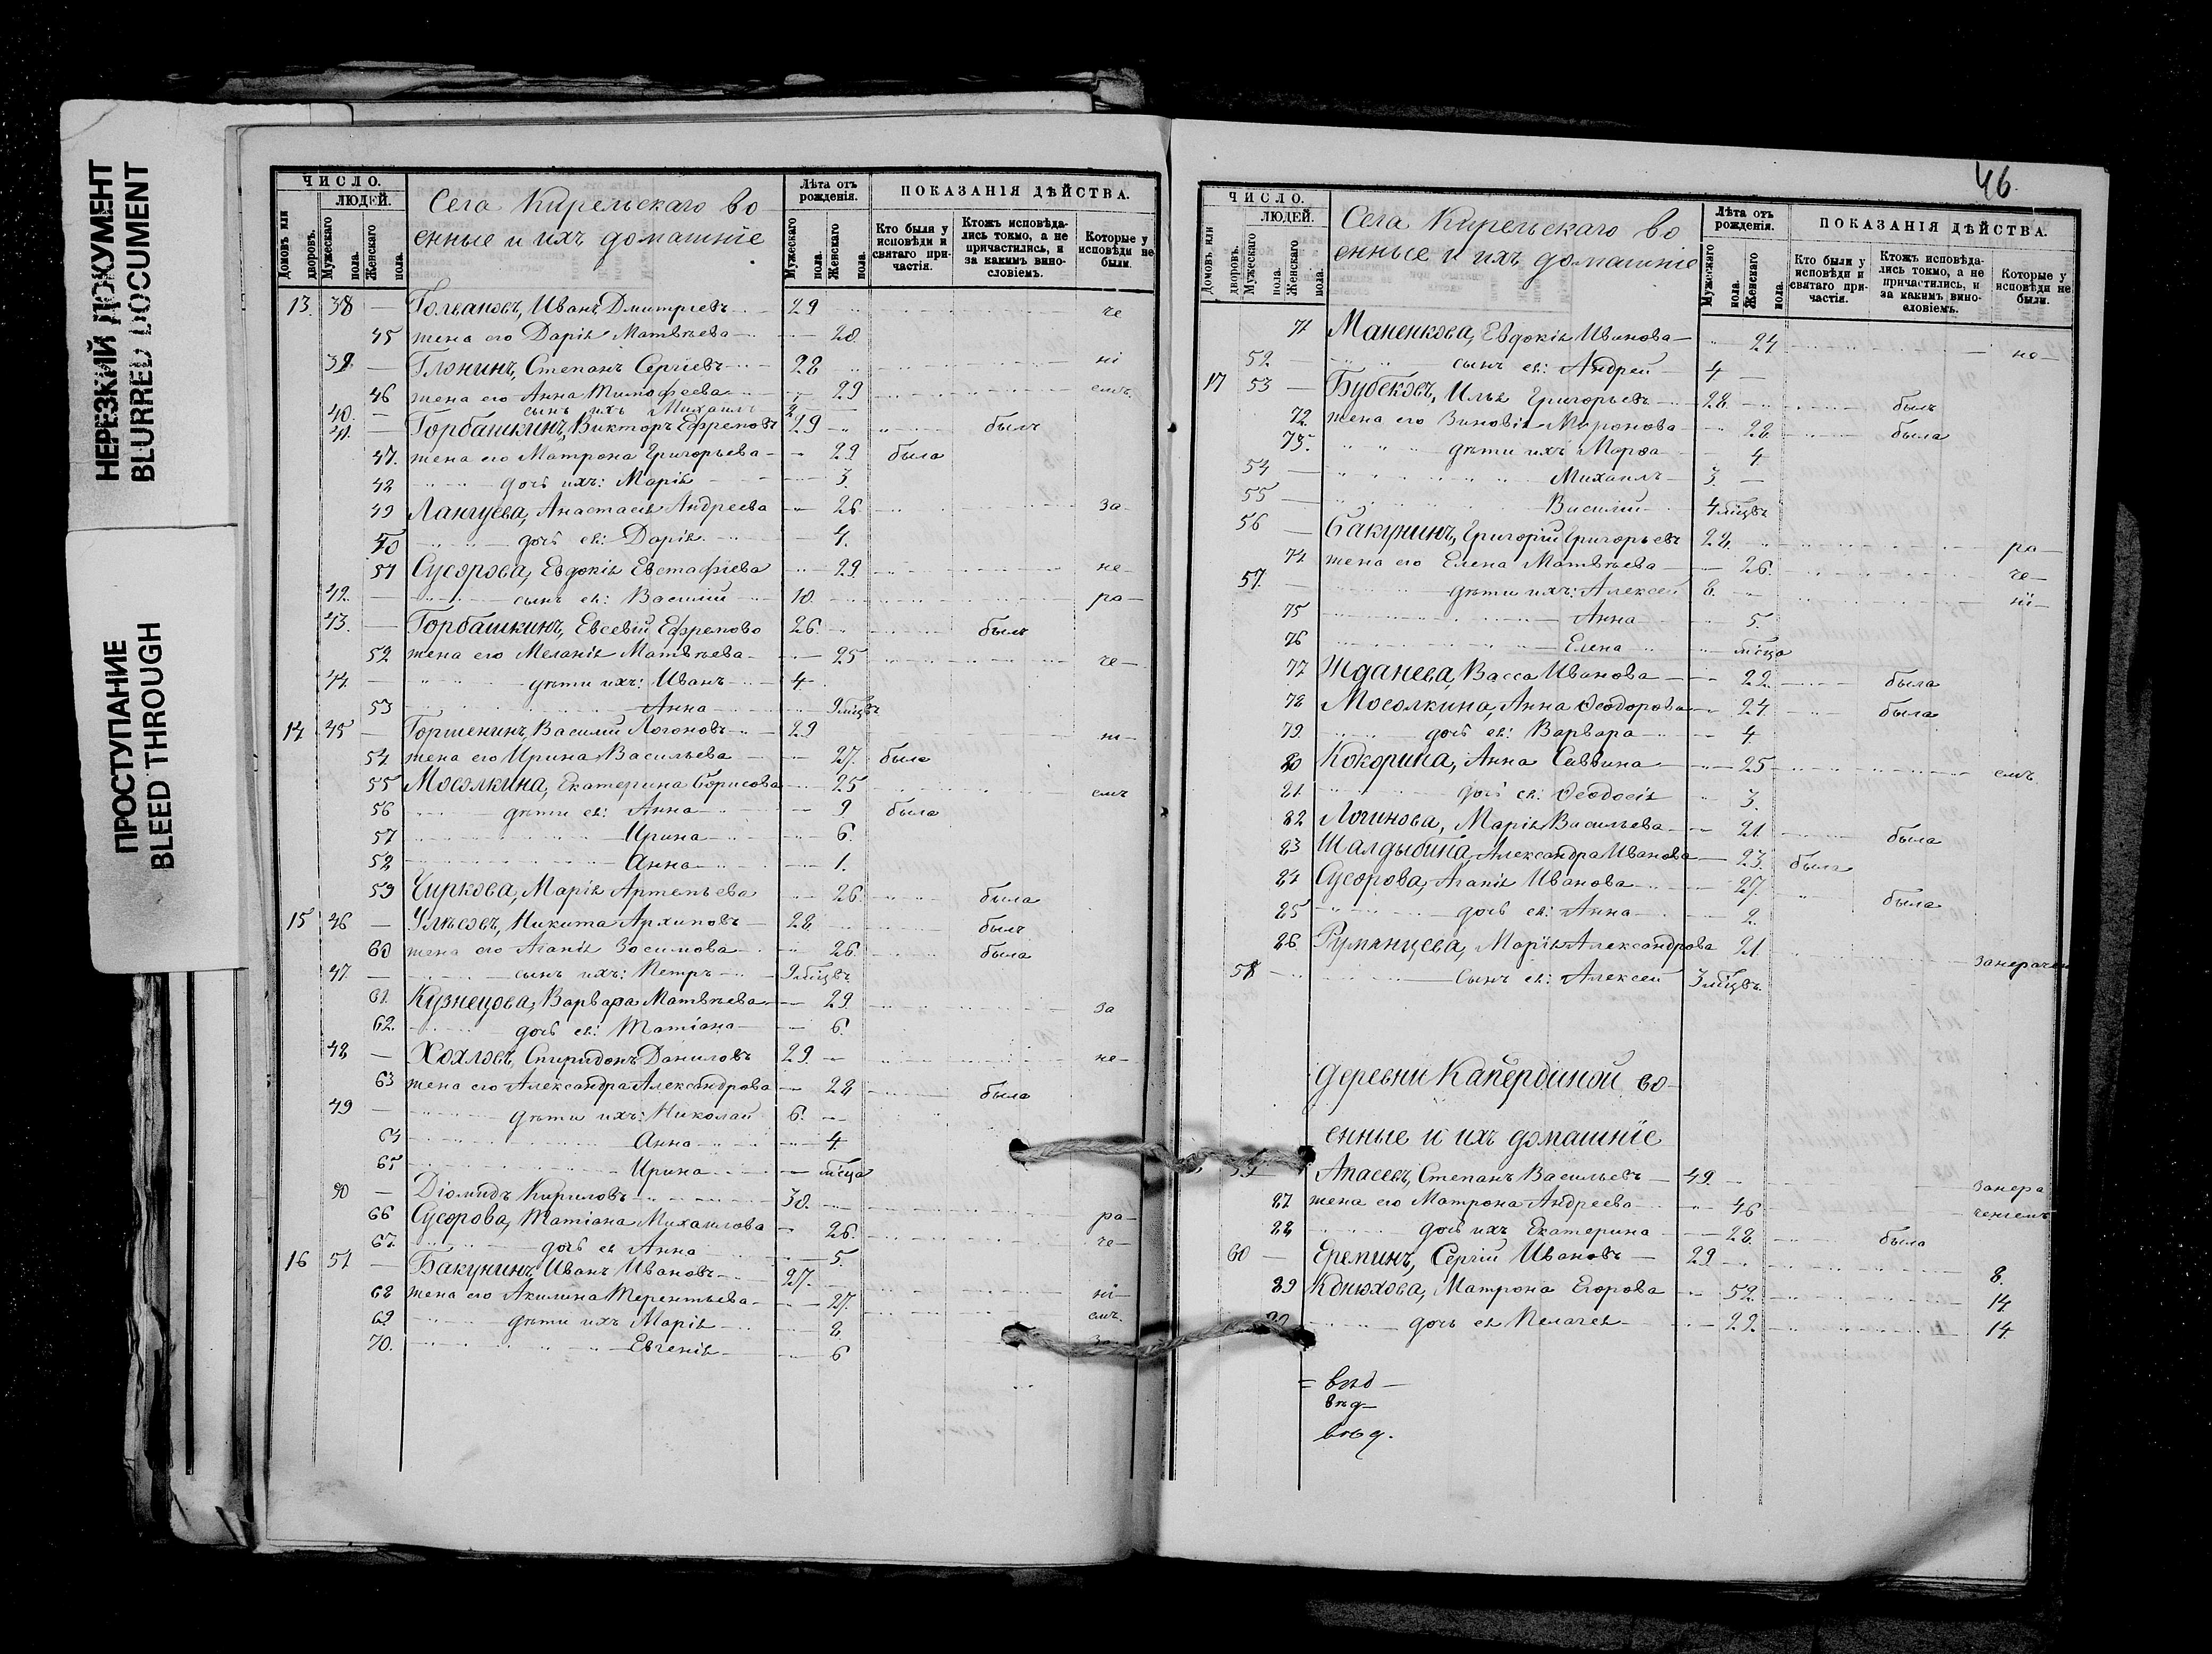 НЕРЕЗКИЙ ДОКУМЕНТ
BLURRED DOCUMENT
ПРОСТУПАНИЕ
BLEED THROUGH
ЧИСЛО.
ЛЮДЕЙ.
Домовъ или дворовъ.
Мужескаго пола.
Женскаго пола.
Села Кирельскаго во
енные и ихъ домашніе
Лѣта отъ рожденія.
Мужескаго пола.
Женскаго пола.
ПОКАЗАНІЯ ДѢЙСТВА.
Кто были у исповѣди и святаго причастія.
Ктожъ исповѣдались токмо, а не причастились, и за какимъ винословіемъ.
Которые у исповѣди не были.
13. 38 — Иванъ Дмитріевъ 29 че
45 жена его Дарія Матвѣева 28
39 — Глонинъ, Степанъ Сергіевъ 28 ні
46 жена его Анна Тимофеева 29 емъ
40. — сынъ ихъ Михаилъ 2
41 — Горбашкинъ, Викторъ Ефремовъ 29 былъ
47. жена его Матрона Григорьева 29 была
48 дочь ихъ: Марія 3.
49 Лангуева, Анастасія Андреева 26 за
50 дочь ея: Дарія 4.
51 Сусорова, Евдокія Евстафіева 29 не
42. — сынъ ея: Василий 10. ра
43. — Горбашкинъ, Евсевій Ефремово 26 былъ
52 жена его Меланія Матвѣева 25 че
44. дѣти ихъ: Иванъ 4
53 Анна 9 мѣцвъ
14 45 — Горшенинъ, Василий Логоновъ 29 ні
54 жена его Ирина Васильева 27. была
55 Мосолкина, Екатерина Борисова 25 емъ
56 дѣти ея: Анна 9 была
57 Ирина 6.
58 Анна 1.
59 Чиркова, Марія Артемьева 26 была
15 46 — Улѣсовъ, Никита Архиповъ 28 былъ
60 жена его Агапія Зосимова 26. была
47. — сынъ ихъ: Петръ 9 мѣцвъ
61. Кузнецова, Варвара Матвѣева 29 за
62. дочь ея: Татіана 6.
48 — Хохловъ, Спиридонъ Даниловъ 29 не
63 жена его Александра Александрова 28 была
49 — дѣти ихъ: Николай 6.
64 Анна 4
65 Ирина мѣсца
50 — Діомидъ Кириловъ 30. ра
66 Сусорова, Татіана Михаилова 26. че
67. дочь ея Анна 5.
16 51 — Бакунинъ, Иванъ Ивановъ 27. ні
68 жена его Акилина Терентьева 27. емъ.
69 дѣти ихъ Марія 8
70. Евгенія 6
46.
ЧИСЛО.
ЛЮДЕЙ.
Домовъ или дворовъ.
Мужескаго пола.
Женскаго пола.
Села Кирельскаго во
енные и ихъ домашніе
Лѣта отъ рожденія.
Мужескаго пола.
Женскаго пола.
ПОКАЗАНІЯ ДѢЙСТВА.
Кто были у исповѣди и святаго причастія.
Ктожъ исповѣдались токмо, а не причастились, и за какимъ винословіемъ.
Которые у исповѣди не были.
71 Маненкова, Евдокія Иванова 24 не
52 — сынъ ея: Андрей 4
17 53 — Бубековъ, Илья Григорьевъ 28. былъ
72. жена его Зиновія Миронова 28 была
73. дѣти ихъ Марѳа 4
54 — Михаилъ 3.
55 — Василий 4 мѣцвъ
56 — Бакунинъ, Григорій Григорьевъ 28. ра
74 жена его Елена Матвѣева 26. че
57. дѣти ихъ: Алексей 8. ні
75 Анна 5.
76 Елена мѣсца
77 Жданеева, Васса Иванова 22. была
78 Мосолкина, Анна Ѳеодорова 24. была
79. дочь ея: Варвара 4
80 Кокорина, Анна Саввина 25 емъ
81. дочь ея: Ѳеодосія 3.
82 Логинова, Марія Васильева 21. была
83 Шалдыбина, Александра Иванова 23. была
84 Сусорова, Агапія Иванова 27. была
85 дочь ея: Анна 2.
86. Румянцева, Марія Александрова 21 занерачен
58 — Сынъ ея: Алексей 3 мѣцвъ.
деревни Капердиной во
енные и ихъ домашніе
59 Апасевъ, Степанъ Васильевъ 49. занера
87 жена его Матрона Андреева 46 ченіемъ
88 дочь ихъ Екатерина 28. была
60 — Ереминъ, Сергій Ивановъ 29. 8.
89 Конюхова, Матрона Егорова 52. 14
дочь ея Пелагея 22. 14